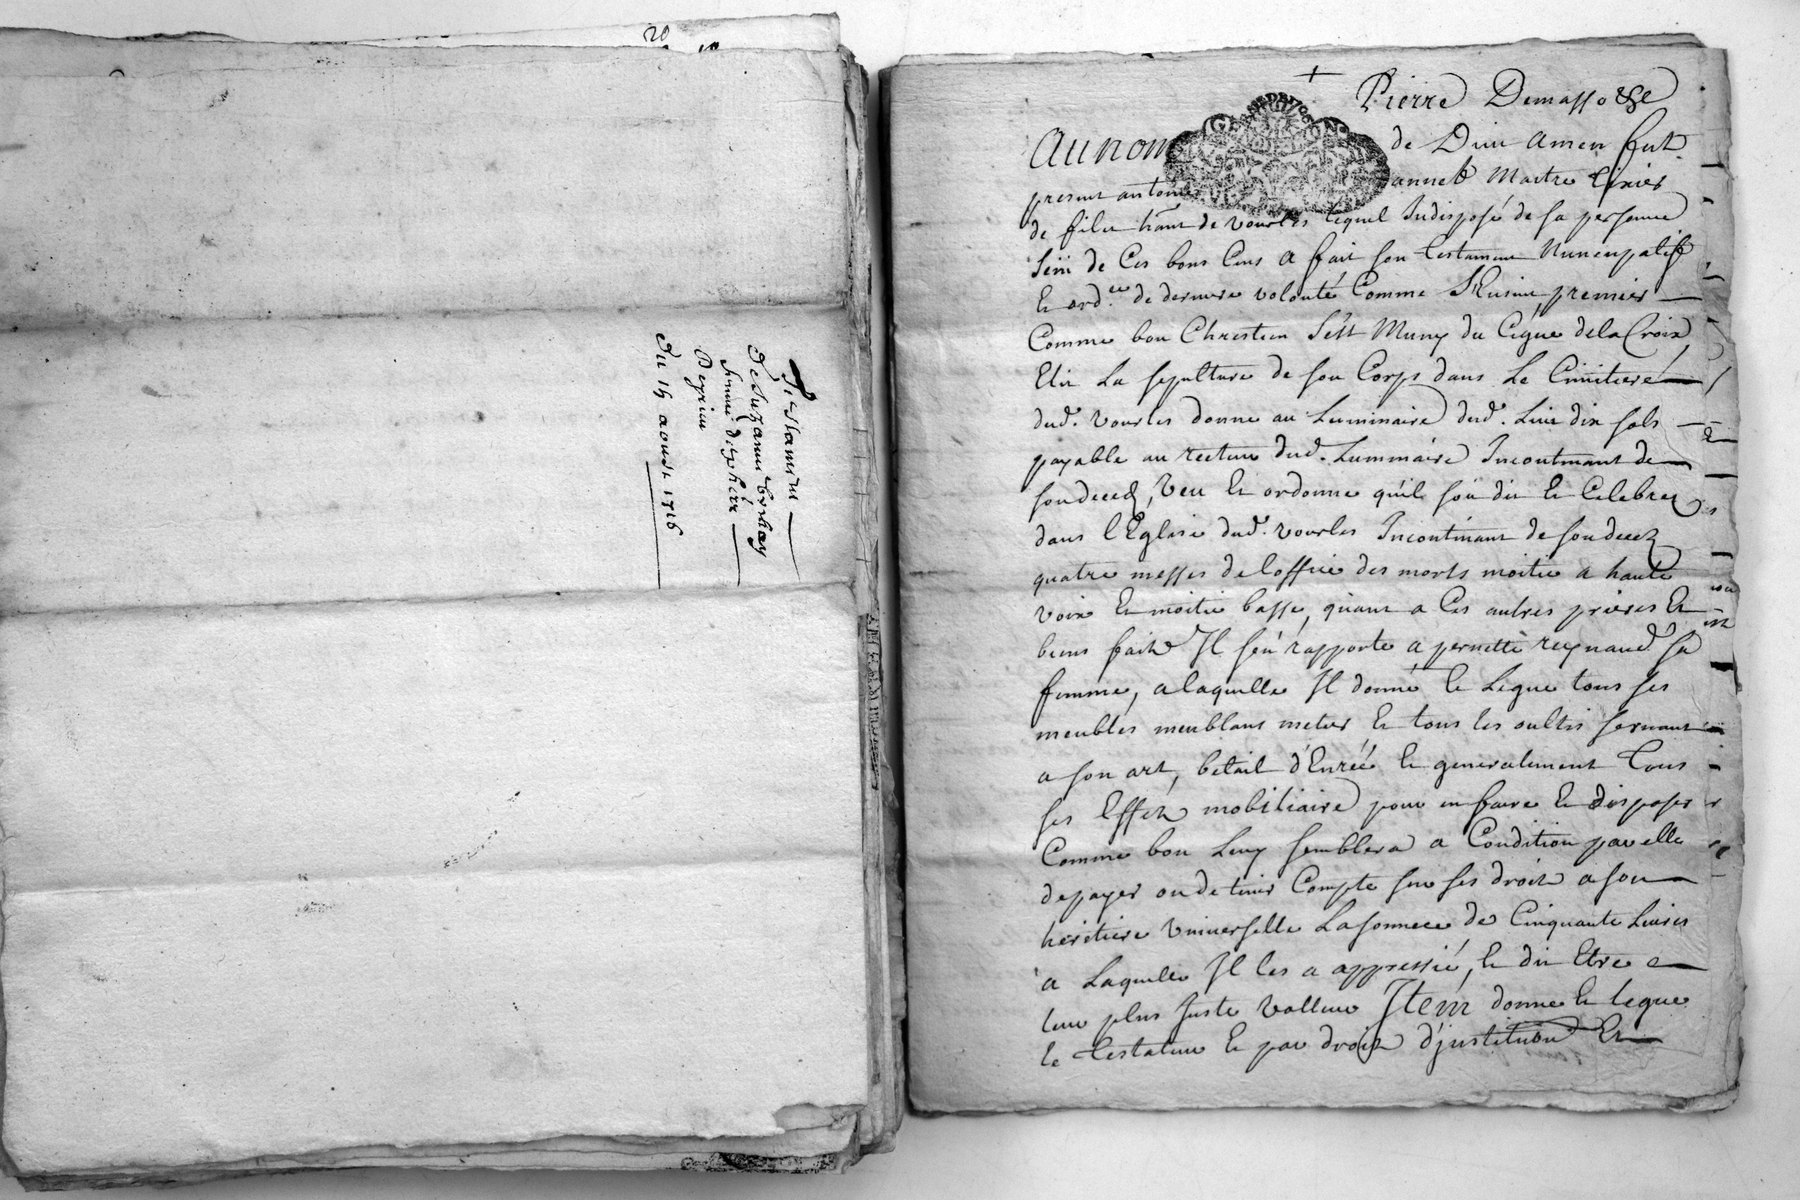 20
Testament
de Suzanne
femme de
Du 15 aoust 1716
Pierre Demasso
GE DE LYON
Au nom de Dieu amen fut
present antoine annet Maitre tixier
de fileu hānt de vourles lequel Indisposé de sa personne
de Ces bons Cens a fait son testament Nuncupatif
Et ord.ce de derniere volonté Comme Sensuit, premier
Comme bon Chrestien S'est Muny du Cigne dela Croix
Elit La sepulture de son Corps dans Le Cimitiere
dud. Vourles donne au Luminaire dud. Lieu dix sols
payable au recteur dud. Luminaire Incontinant de
son deced, Veu Et ordonne qu'il soit dit Et Celebrez
dans l'Eglise dud. vourles Incontinant de son decez
quatre messes de loffice des morts moitié a haute
voix Et moitié basse, quant a Ces autres prieres Et
biens faits Il s'en rapporte a pernette reynaud sa
femme, a laquelle Il donne Et Legue tous ses
meubles meublant metier Et tous les oultis servant
a son art, betail d'Enrée Et generalement Tous
ses Effets mobiliaire pour en faire Et disposer
Comme bon Luy semblera a Condition par elle
de payer ou de tenir Compte sur ses droits a son
heritiere Universelle La somme de Cinquante Livres
a Laquelle Il les a appressié, Et dit Etre
leur plus Juste valleur Item donne Et legue
le testateur Et par droit d'justitution Et